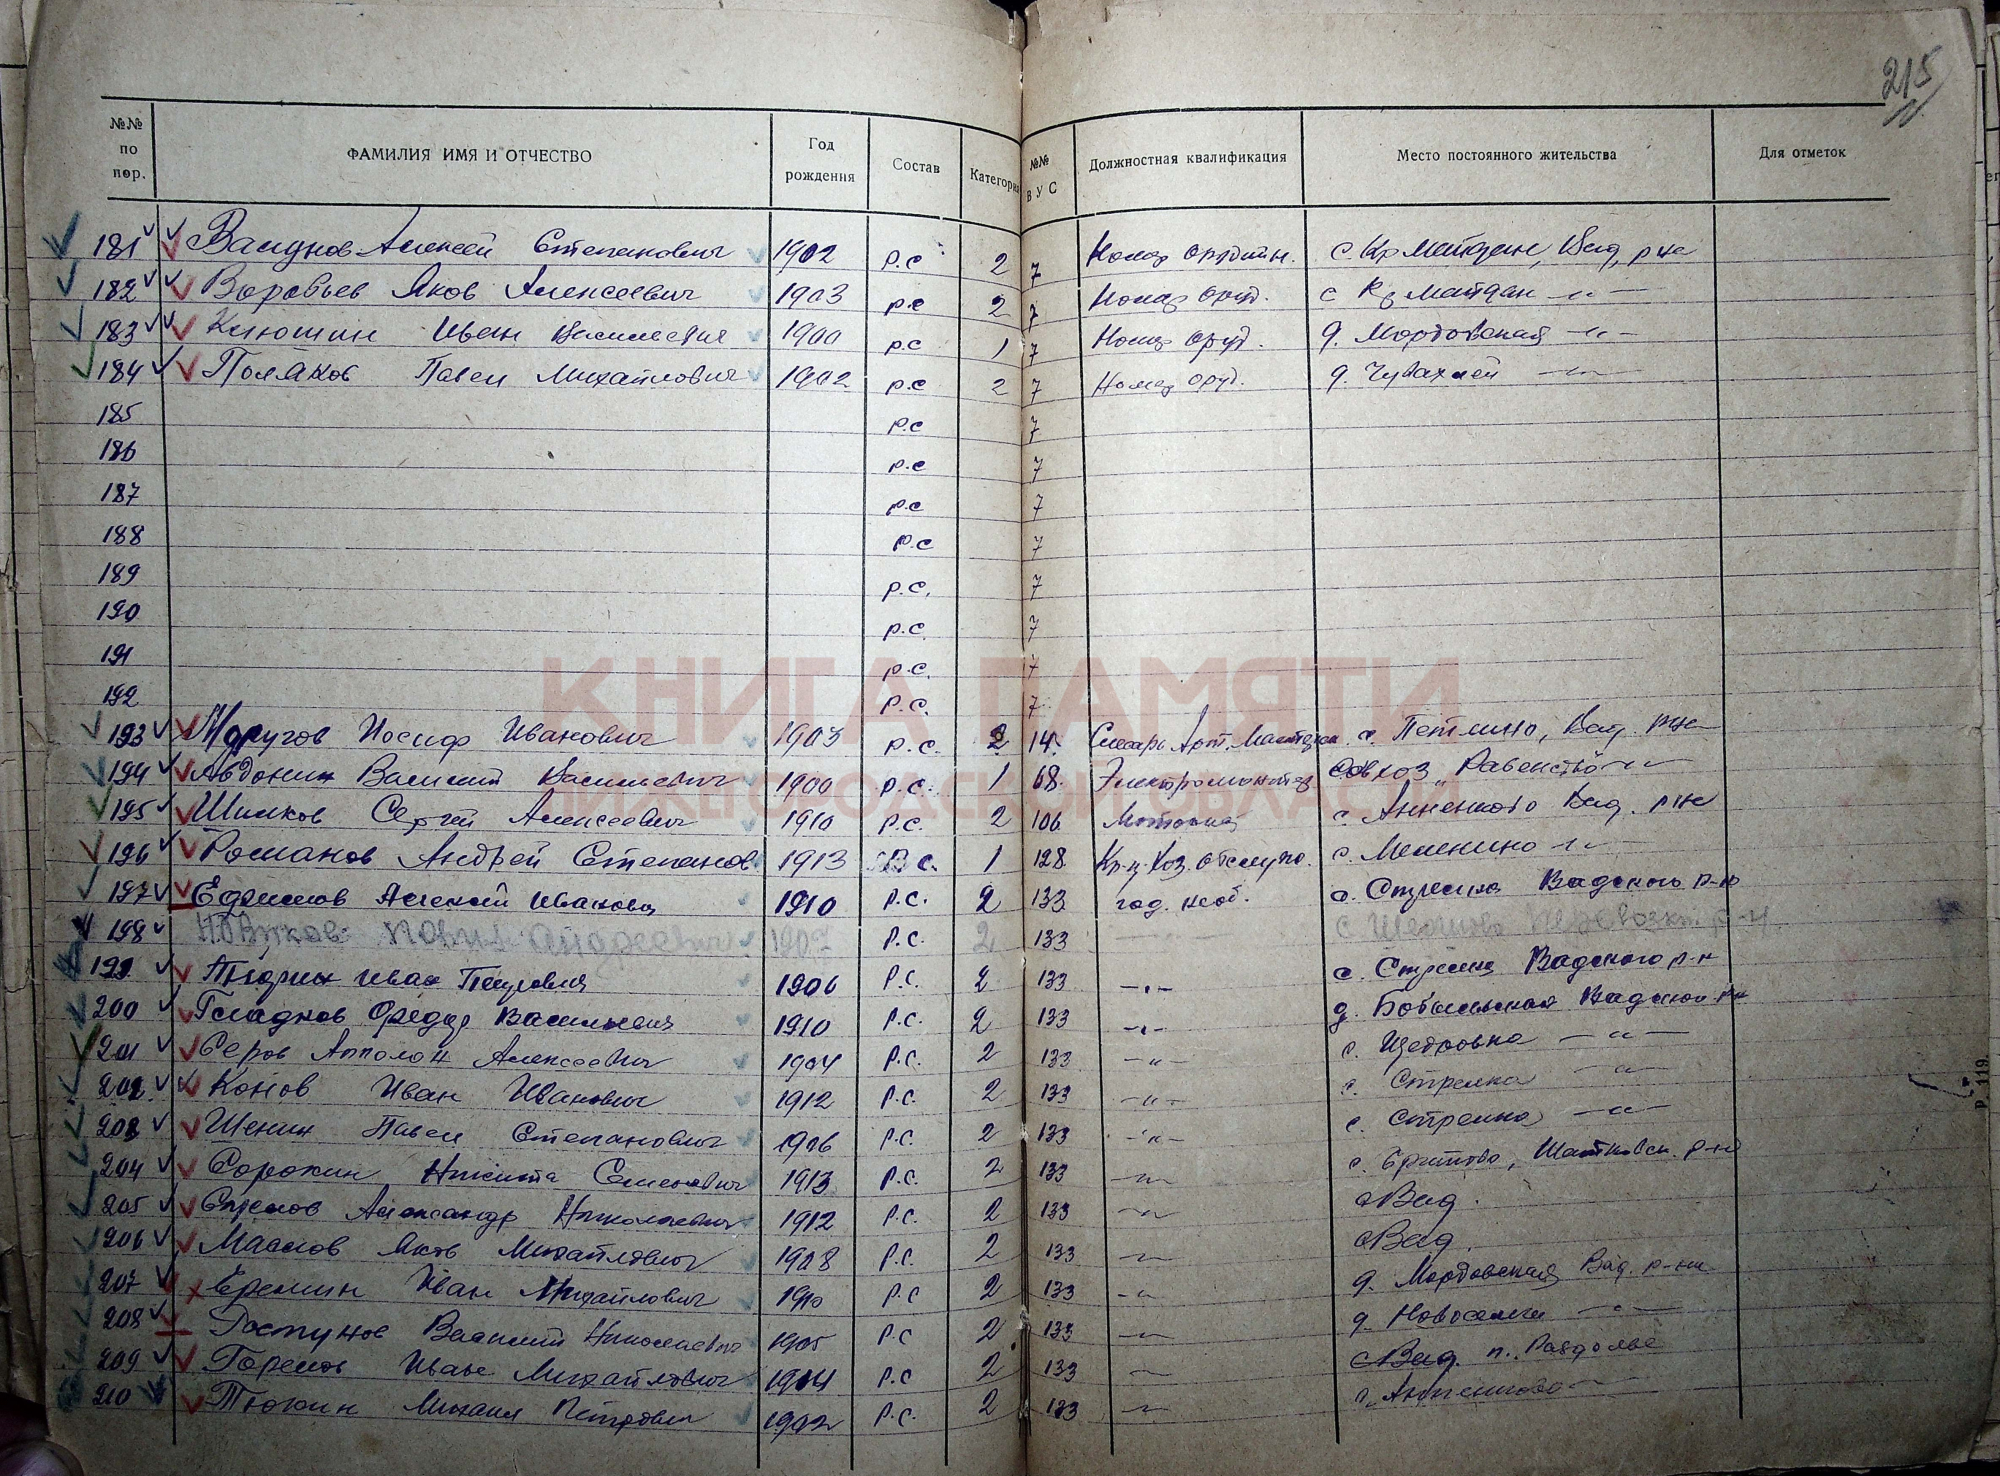 215
№№ по пор. ФАМИЛИЯ ИМЯ И ОТЧЕСТВО Год рождения Состав Категория №№ ВУС Должностная квалификация Место постоянного жительства Для отметок
181 Алексей Степанович 1902 р.с 2 7 Номер с. Кр Майдан, Вад, р-на
182 Воробьев Яков Алексеевич 1903 р.с 2 7 Номер оруд. с Кр Майдан -"-
183 Клюшин Иван Васильевич 1900 р.с 1 7 Номер оруд. д. Мордовская -"-
184 Поляков Павел Михайлович 1902 р.с 2 7 Номер оруд. д. Чувахлей -"-
185 р.с 7
186 р.с 7
187 р.с 7
188 р.с 7
189 р.с. 7
190 р.с. 7
191 р.с. 7
192 р.с. 7
193 Иосиф Иванович 1903 р.с. 2 14 Слесарь Арт. с. Петлино, Вад. р-на
194 Авдонин Василий Васильевич 1900 р.с. 1 68 Электромонтер Совхоз "Равенство" -"-
195 Шилков Сергей Алексеевич 1910 р.с. 2 106 с. Анненково Вад. р-на
196 Романов Андрей Степанов. 1913 с. 1 128 Кр-ц Хоз. обслуж. с. Меленино -"-
197 Ефимов Алексей Иванович 1910 р.с. 2 133 год. необ. с. Стрелка Вадского р-на
198 Новиков Павел Андреевич 1907 р.с. 2 133 с. Перевозск. р-н
199 Иван Петрович 1906 р.с. 2 133 -"- с. Стрелка Вадского р-н
200 Гладков Федор Васильевич 1910 р.с. 2 133 -"- д. Бобыльская Вадского р-на
201 Серов Апполон Алексеевич 1904 р.с. 2 133 -"- с. Щедровка -"-
202 Конов Иван Иванович 1912 р.с. 2 133 -"- с. Стрелка -"-
203 Шенин Павел Степанович 1906 р.с. 2 133 -"- с. Стрелка -"-
204 Сорокин Никита Семенович 1913 р.с. 2 133 -"- с. Шатковск. р-на
205 Александр Николаевич 1912 р.с. 2 133 -"- с Вад.
206 Маслов Яков Михайлович 1908 р.с. 2 133 -"- с Вад.
207 Еремин Иван Михайлович 1910 р.с 2 133 -"- д. Мордовская Вад. р-на
208 Василий Николаевич 1905 р.с 2 133 -"- д. Новоселки -"-
209 Горелов Иван Михайлович 1904 р.с 2 133 -"- с Вад. п. Раздолье
210 Тюкин Михаил Петрович 1902 р.с. 2 133 -"- с. Анненково -"-
КНИГА ПАМЯТИ
НИЖЕГОРОДСКОЙ ОБЛАСТИ